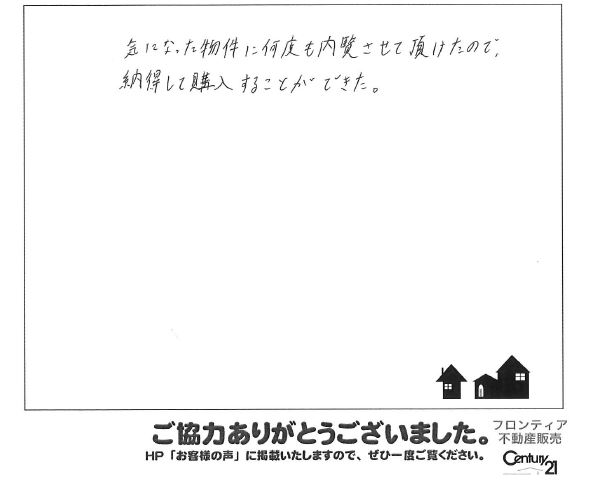 気になった物件に何度も内覧させて頂けたので、
納得して購入することができた。
ご協力ありがとうございました。
HP「お客様の声」に掲載いたしますので、ぜひ一度ご覧ください。
フロンティア
不動産販売
Century 21